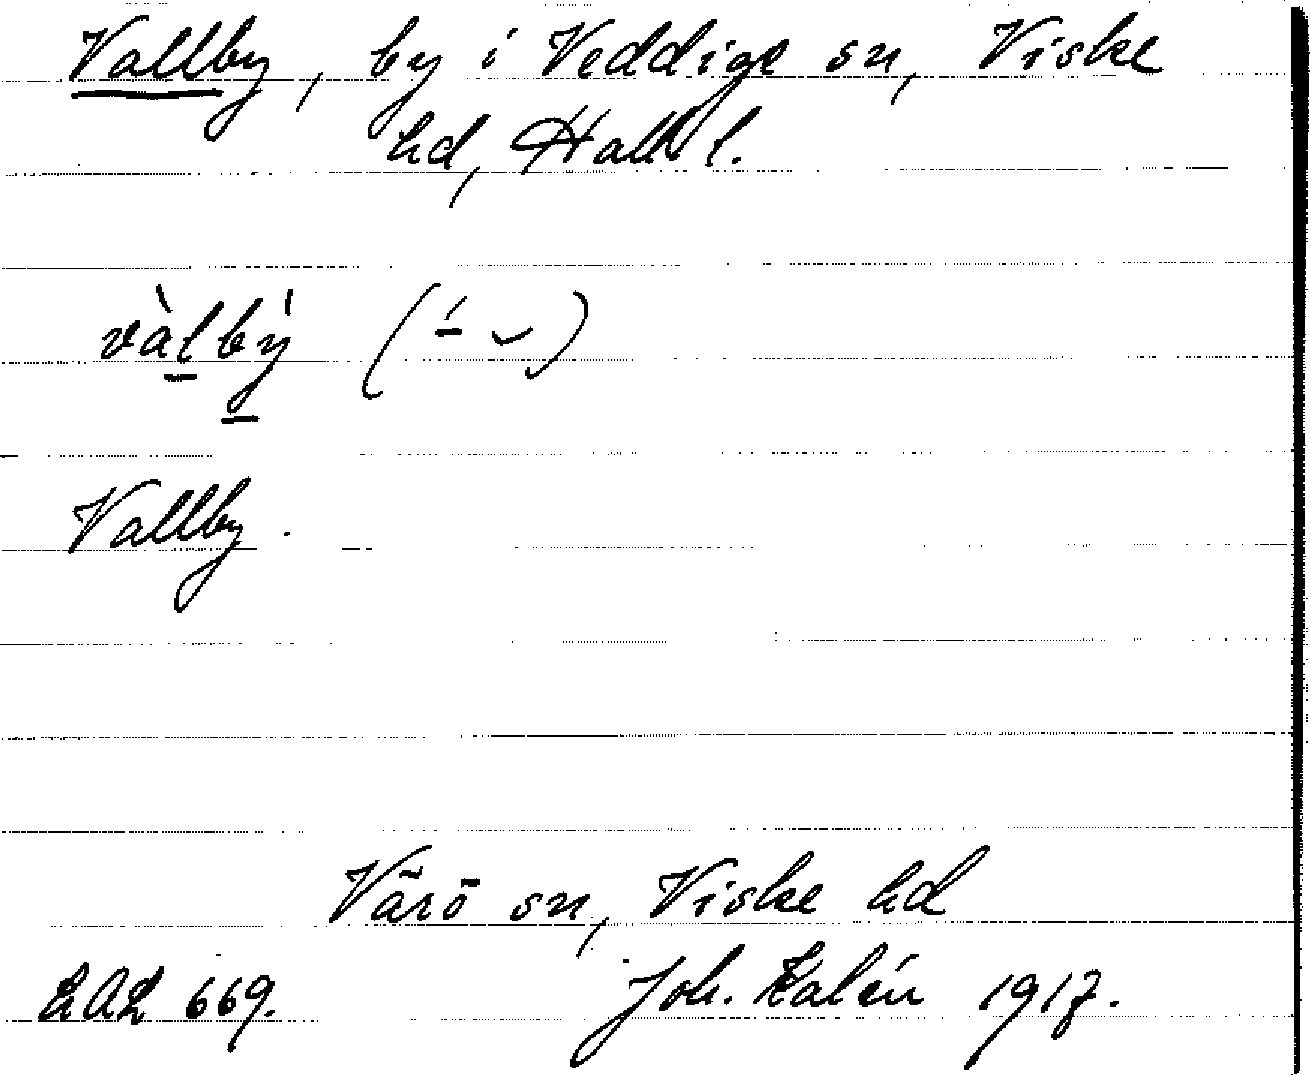 Vallby, by i Veddige sn, Viske
hd, Hall l.
vàlbý (-́ ⌣)
Vallby.
Värö sn, Viske hd
LAL 669. Joh. Kalén 1917.